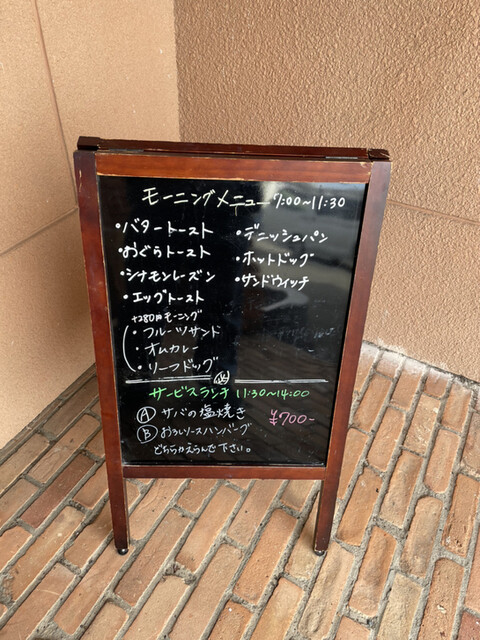 モーニングメニュー 7:00~11:30
・バタートースト
・おぐらトースト
・シナモンレーズン
・エッグトースト
・デニッシュパン
・ホットドッグ
・サンドウィッチ
+280円モーニング
・フルーツサンド
・オムカレー
・リーフドッグ
サービスランチ 11:30~14:00
Ⓐ サバの塩焼き ¥700-
Ⓑ おろしソースハンバーグ
どちらかえらんで下さい。